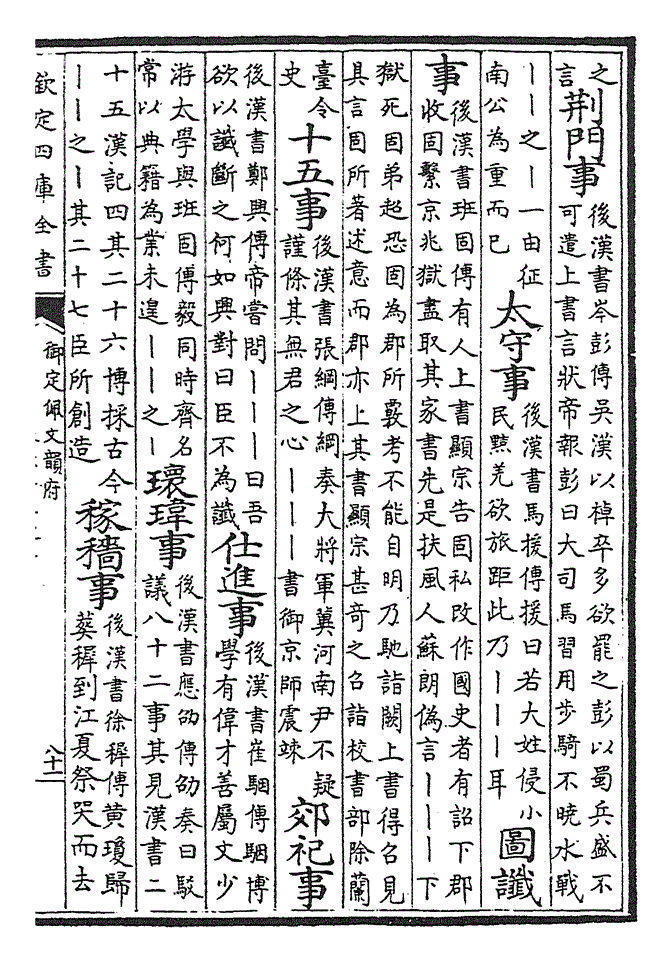 之
言
荆門事
後漢書岑彭傳吴漢以棹卒多欲罷之彭以蜀兵盛不
可遣上書言狀帝報彭曰大司馬習用步騎不曉水戰
｜｜之｜一由征
南公為重而已
太守事
後漢書馬援傳援曰若大姓侵小
民黠羌欲旅距此乃｜｜｜耳
圖讖
事
後漢書班固傳有人上書顯宗告固私改作國史者有詔下郡
收固繫京兆獄盡取其家書先是扶風人蘇朗偽言｜｜｜下
獄死固弟超恐固為郡所覈考不能自明乃馳詣闕上書得召見
具言固所著述意而郡亦上其書顯宗甚奇之召詣校書部除蘭
臺令
史
十五事
後漢書張綱傳綱奏大將軍冀河南尹不疑
謹條其無君之心｜｜｜書御京師震竦
郊祀事
後漢書鄭興傳帝嘗問｜｜｜曰吾
欲以讖斷之何如興對曰臣不為讖
仕進事
後漢書崔駰傳駰博
學有偉才善屬文少
游太學與班固傳毅同時齊名
常以典籍為業未遑｜｜之｜
環瑋事
後漢書應劭傳劭奏曰駁
議八十二事其見漢書二
十五漢記四其二十六博採古今
｜｜之｜其二十七臣所創造
稼穡事
後漢書徐穉傳黃瓊歸
葬穉到江夏祭哭而去
欽定四庫全書
御定佩文韻府
八十二